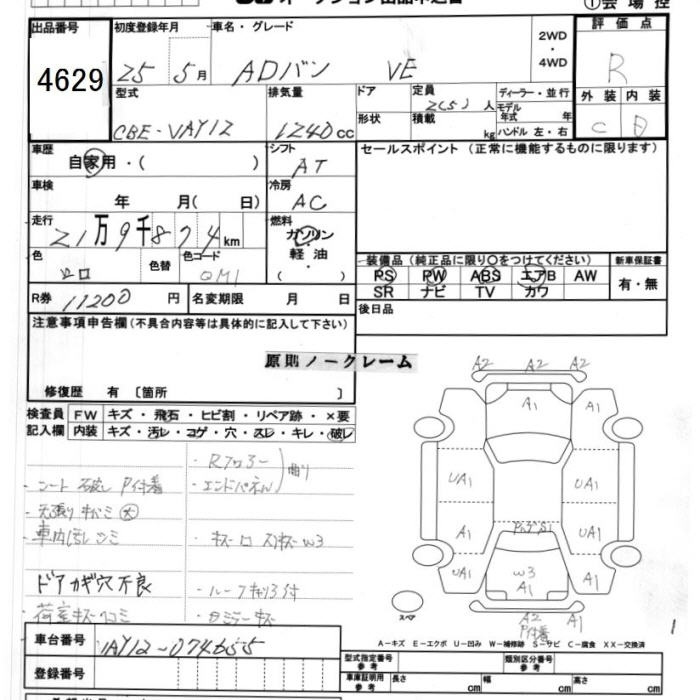 出品番号
4629
初度登録年月
25 5月
車名・グレード
ADバン VE
2WD
・
4WD
評価点
R
型式
CBE-VAY12
排気量
1240cc
ドア
形状
定員
2(5)人
積載
kg
ディーラー・並行
モデル年式 年
ハンドル 左・右
外装 内装
C D
車歴
自家用・( )
シフト
AT
セールスポイント (正常に機能するものに限ります)
車検
年 月( 日)
冷房
AC
走行
21万9千874km
燃料
ガソリン
・
軽油
・
色
シロ
色替
色コード
QM1
装備品(純正品に限り〇をつけてください)
PS PW ABS エアB AW
SR ナビ TV カワ
新車保証書
有・無
R券 11200円
名変期限 月 日
後日品
注意事項申告欄(不具合内容等は具体的に記入して下さい)
原則ノークレーム
修復歴 有 〔箇所 〕
検査員記入欄
FW キズ・飛石・ヒビ割・リペア跡・×要
内装 キズ・汚レ・コゲ・穴・スレ・キレ・破レ
・Rフロアー
・エンドパネル
曲り
・シート破レ P付着
・天張り キバミ 大
・車内汚レ シミ
・キズ凹 スリキズ W3
ドアカギ穴不良
・ルーフキャリア付
荷室キズ凹コミ
A2 A2 A2
A1 A1
UA1 UA1
A1 UA1
UA1 W3 A1
A1
A2 A1
P付着
スペア
1
A-キズ E-エクボ U-凹み W-補修跡 S-サビ C-腐食 XX-交換済
車台番号
VAY12-074655
登録番号
型式指定番号
参考
類別区分番号
参考
車庫証明用
参考
長さ cm
幅 cm
高さ cm